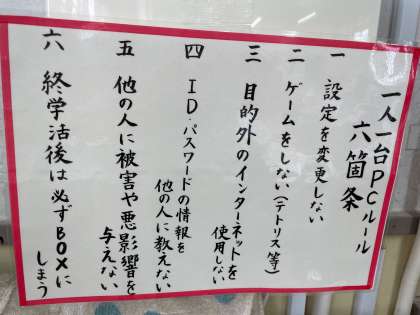 一人一台PCルール
六箇条
一 設定を変更しない
二 ゲームをしない(テトリス等)
三 目的外のインターネットを
使用しない
四 ID・パスワードの情報を
他の人に教えない
五 他の人に被害や悪影響を
与えない
六 終学活後は必ずBOXに
しまう